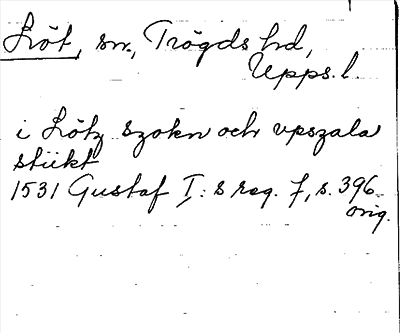 Löt, sn., Trögds hd,
Upps. l.
i Lötz szokn och vpszala
stikt
1531 Gustaf I:s reg. 7, s. 396.
orig.